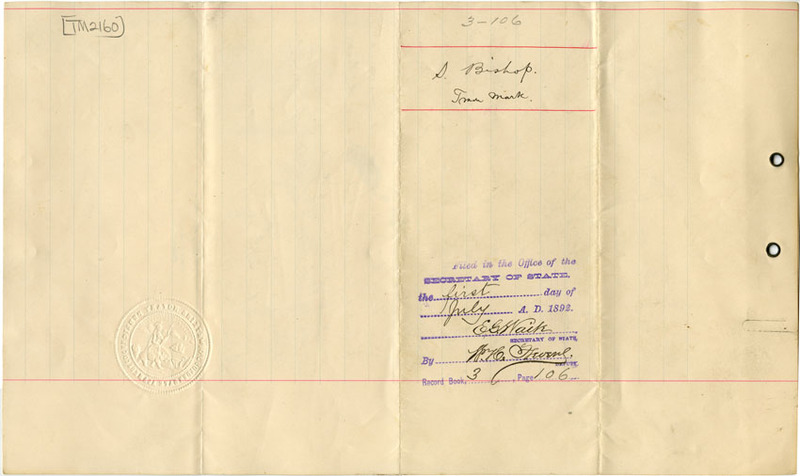 [TM2160]
3-106
S. Bishop.
Trade Mark.
Filed in the Office of the
SECRETARY OF STATE,
the first day of
July A. D. 1892.
E G Waite
SECRETARY OF STATE,
By Wm H.
DEPUTY.
Record Book, 3, Page 106